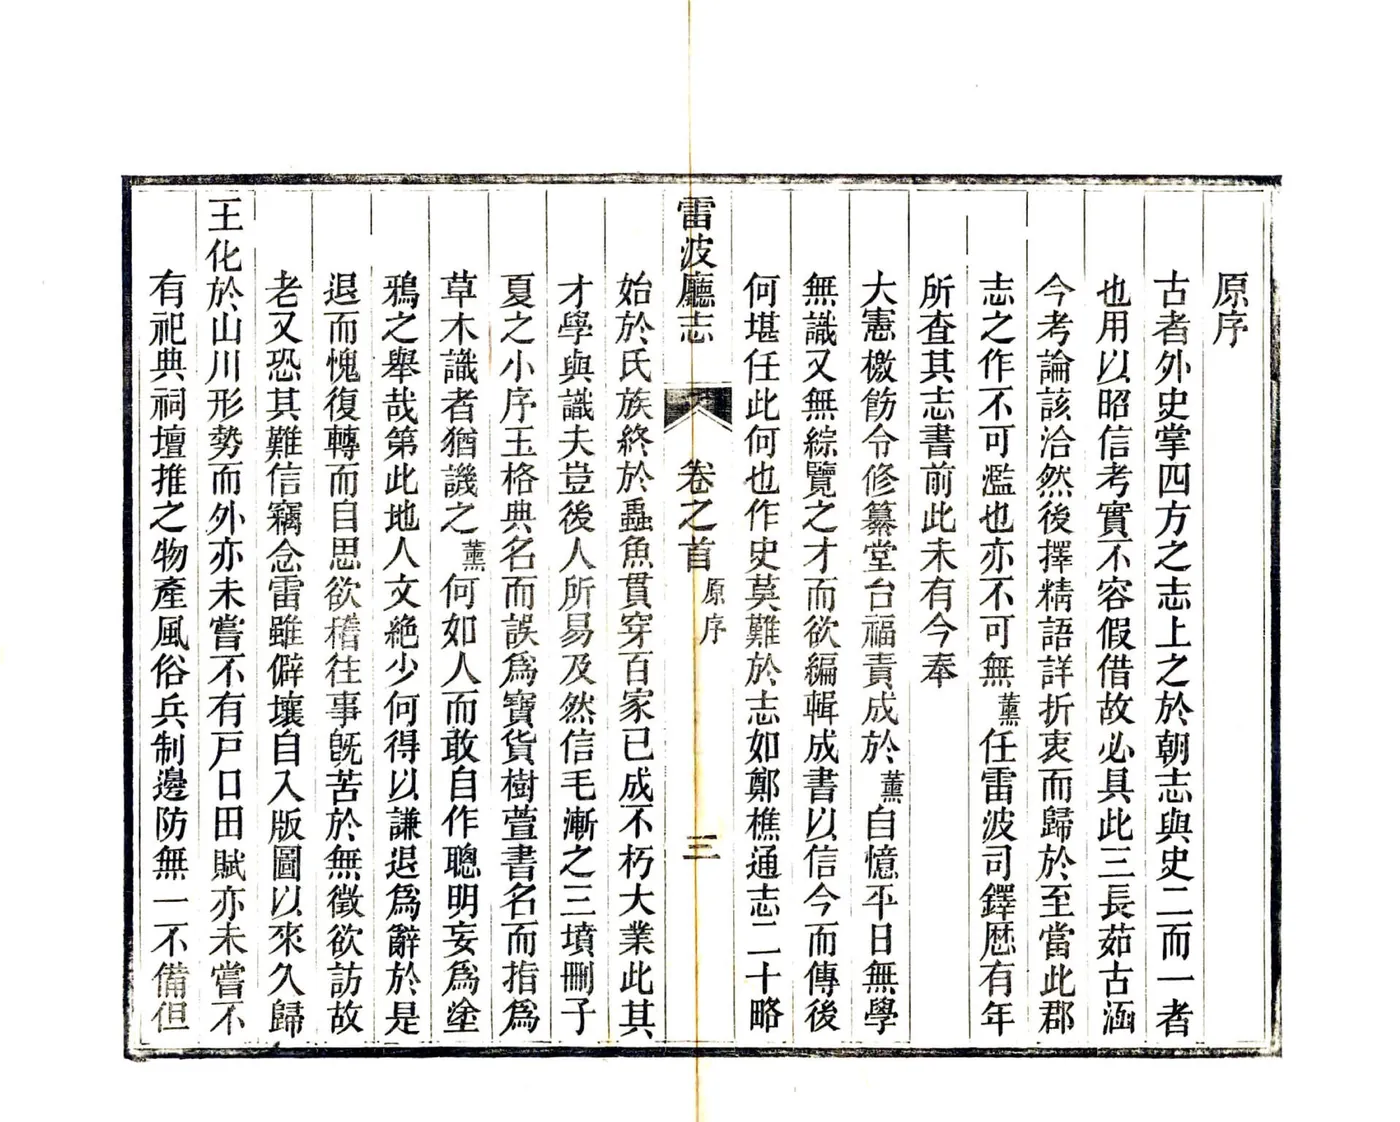 原序
古者外史掌四方之志上之於朝志與史二而一者
也用以昭信考實不容假借故必具此三長茹古涵
今考論該洽然後擇精語詳折衷而歸於至當此郡
志之作不可濫也亦不可無薰任雷波司鐸歷有年
所查其志書前此未有今奉
大憲檄飭令修纂堂台福責成於薰自憶平日無學
無識又無綜覽之才而欲編輯成書以信今而傳後
何堪任此何也作史莫難於志如鄭樵通志二十略
雷波廳志 卷之首 原序 三
始於氏族終於蟲魚貫穿百家已成不朽大業此其
才學與識夫豈後人所易及然信毛漸之三墳刪子
夏之小序玉格典名而誤為寶貨樹萱書名而指為
草木識者猶譏之薰何如人而敢自作聰明妄為塗
鴉之舉哉第此地人文絕少何得以謙退為辭於是
退而愧復轉而自思欲稽往事既苦於無徵欲訪故
老又恐其難信竊念雷雖僻壤自入版圖以來久歸
王化於山川形勢而外亦未嘗不有戶口田賦亦未嘗不
有祀典祠壇推之物產風俗兵制邊防無一不備但